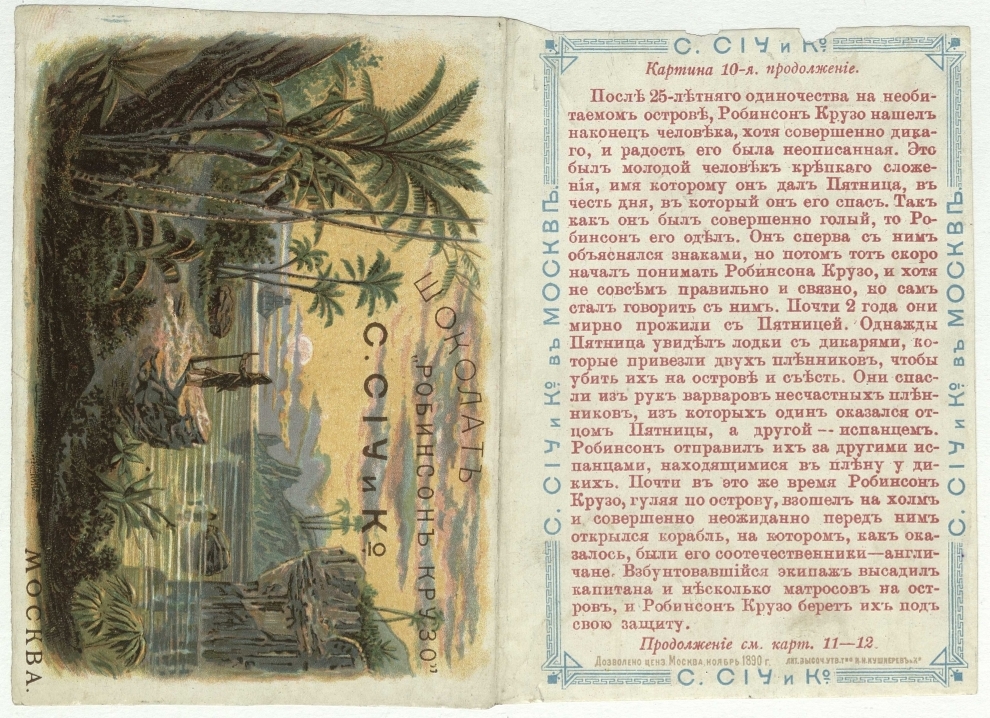 ШОКОЛАТЪ
„РОБИНСОНЪ КРУЗО”
С. СІУ и Кº
МОСКВА.
С. СІУ и Кº
С. СІУ и Кº въ МОСКВѢ.
С. СІУ и Кº въ МОСКВѢ.
Картина 10-я. продолженіе.
Послѣ 25-лѣтняго одиночества на необи-
таемомъ островѣ, Робинсонъ Крузо нашелъ
наконецъ человѣка, хотя совершенно дика-
го, и радость его была неописанная. Это
былъ молодой человѣкъ крѣпкаго сложе-
нія, имя которому онъ далъ Пятница, въ
честь дня, въ который онъ его спасъ. Такъ
какъ онъ былъ совершенно голый, то Ро-
бинсонъ его одѣлъ. Онъ сперва съ нимъ
объяснялся знаками, но потомъ тотъ скоро
началъ понимать Робинсона Крузо, и хотя
не совсѣмъ правильно и связно, но самъ
сталъ говорить съ нимъ. Почти 2 года они
мирно прожили съ Пятницей. Однажды
Пятница увидѣлъ лодки съ дикарями, ко-
торые привезли двухъ плѣнниковъ, чтобы
убить ихъ на островѣ и съѣсть. Они спас-
ли изъ рукъ варваровъ несчастныхъ плѣн-
никовъ, изъ которыхъ одинъ оказался от-
цомъ Пятницы, а другой — испанцемъ.
Робинсонъ отправилъ ихъ за другими ис-
панцами, находящимися въ плѣну у ди-
кихъ. Почти въ это же время Робинсонъ
Крузо, гуляя по острову, взошелъ на холмъ
и совершенно неожиданно передъ нимъ
открылся корабль, на которомъ, какъ ока-
залось, были его соотечественники—англи-
чане. Взбунтовавшійся экипажъ высадилъ
капитана и нѣсколько матросовъ на ост-
ровъ, и Робинсонъ Крузо беретъ ихъ подъ
свою защиту.
Продолженіе см. карт. 11—12.
Дозволено ценз. Москва, ноябрь 1890 г. Лит. Высоч. утв. Т-ва И. Н. Кушнеревъ и Кº
С. СІУ и Кº